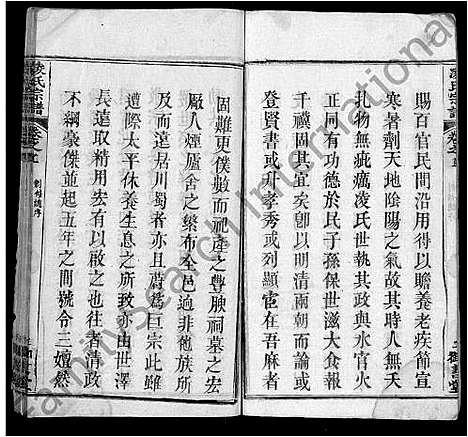 凌氏宗譜
賜百官民間沿用得以贍養老疾節宣
寒暑劑天地陰陽之氣故其時人無夭
札物無疵癘凌氏世執其政與水官火
正同有功德於民子孫保世滋大食報
千禩固其宜矣卽以明清兩朝而論或
登賢書或列孝秀或列顯宦在吾麻者
固難更僕數而祠產之豐腴祠墓之宏
厰人煙廬舍之櫐布全邑過非他族所
及而遠居川蜀者亦且蔚爲巨宗此雖
遭際太平休養生息之所致亦由世澤
長遠取精用宏有以啟之也往者清政
不綱豪傑並起五年之間號令三嬗然
凌氏宗譜
創修譜序
Familysearch International